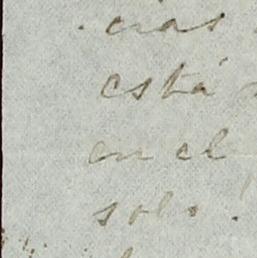 cias
está
en el
solo.